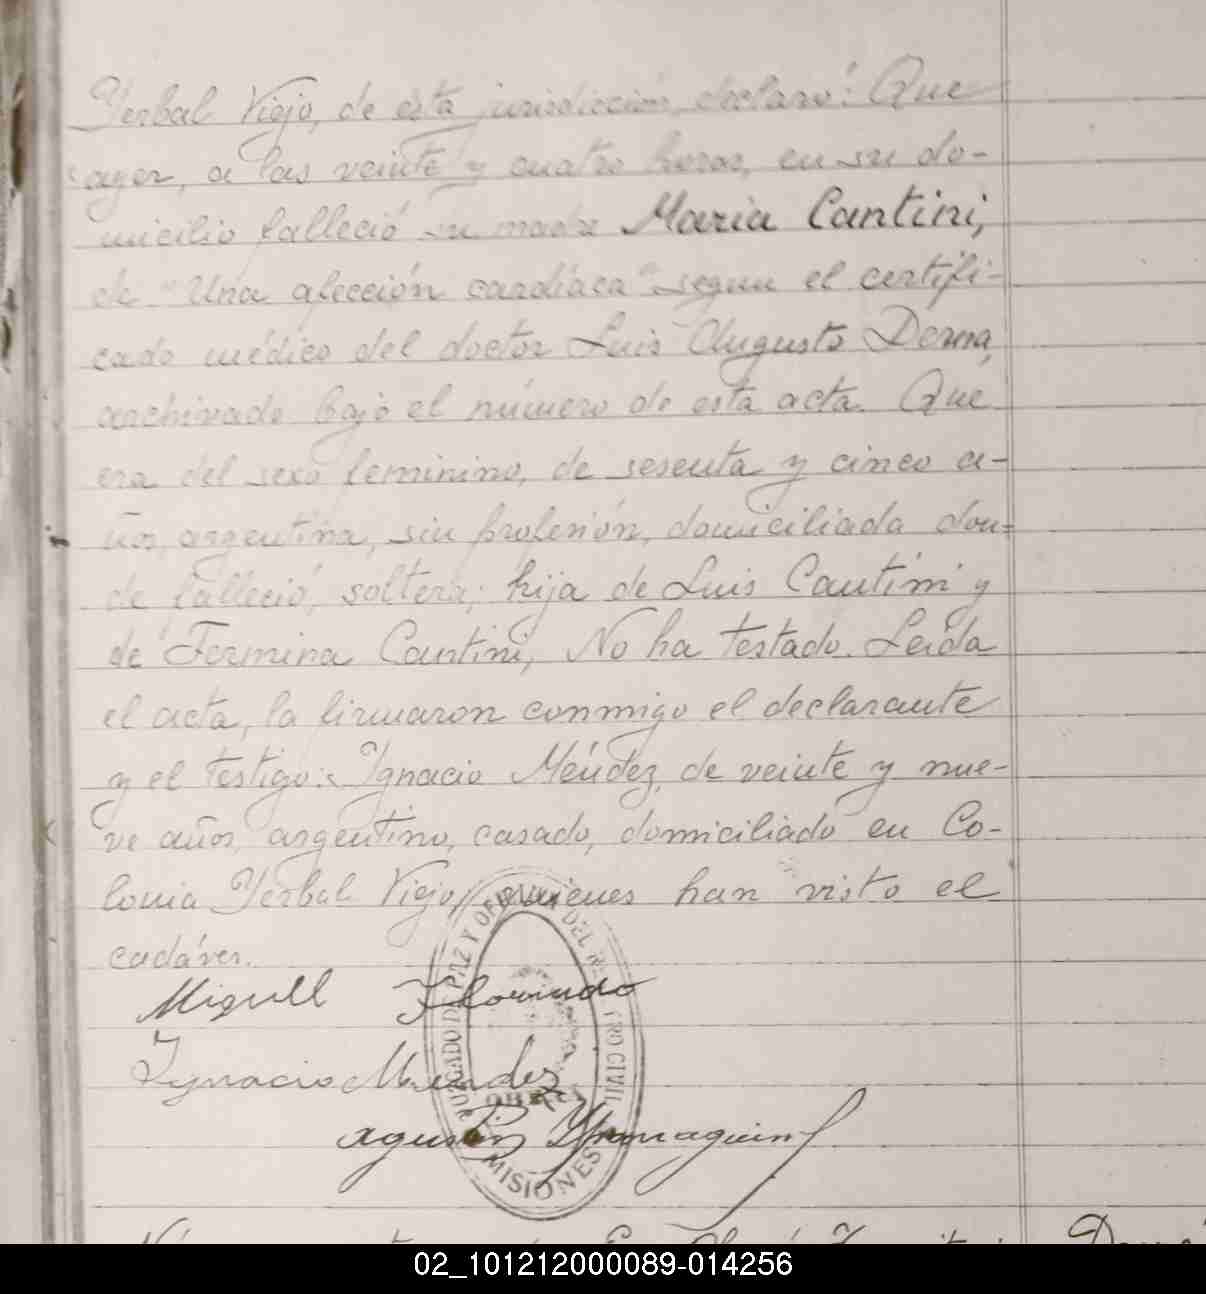 Yerbal Viejo, de esta jurisdicción, declaró: Que
ayer, a las veinte y cuatro horas, en su do-
micilio falleció su madre Maria Cantini,
de "Una afección cardíaca" segun el certifi-
cado médico del doctor Luis Augusto Derna,
archivado bajo el número de esta acta. Que
era del sexo feminino, de sesenta y cinco a-
ños, argentina, sin profesión, domiciliada don-
de falleció, soltera; hija de Luis Cantini y
de Fermina Cantini, No ha testado. Leida
el acta, la firmaron conmigo el declarante
y el testigo: Ignacio Méndez, de veinte y nue-
ve años, argentino, casado, domiciliado en Co-
lonia Yerbal Viejo, quienes han visto el
cadáver.
Miguel Florindo
Ignacio Mendez
JUZGADO DE PAZ Y OFICINA DEL REGISTRO CIVIL
MISIONES
02_101212000089-014256